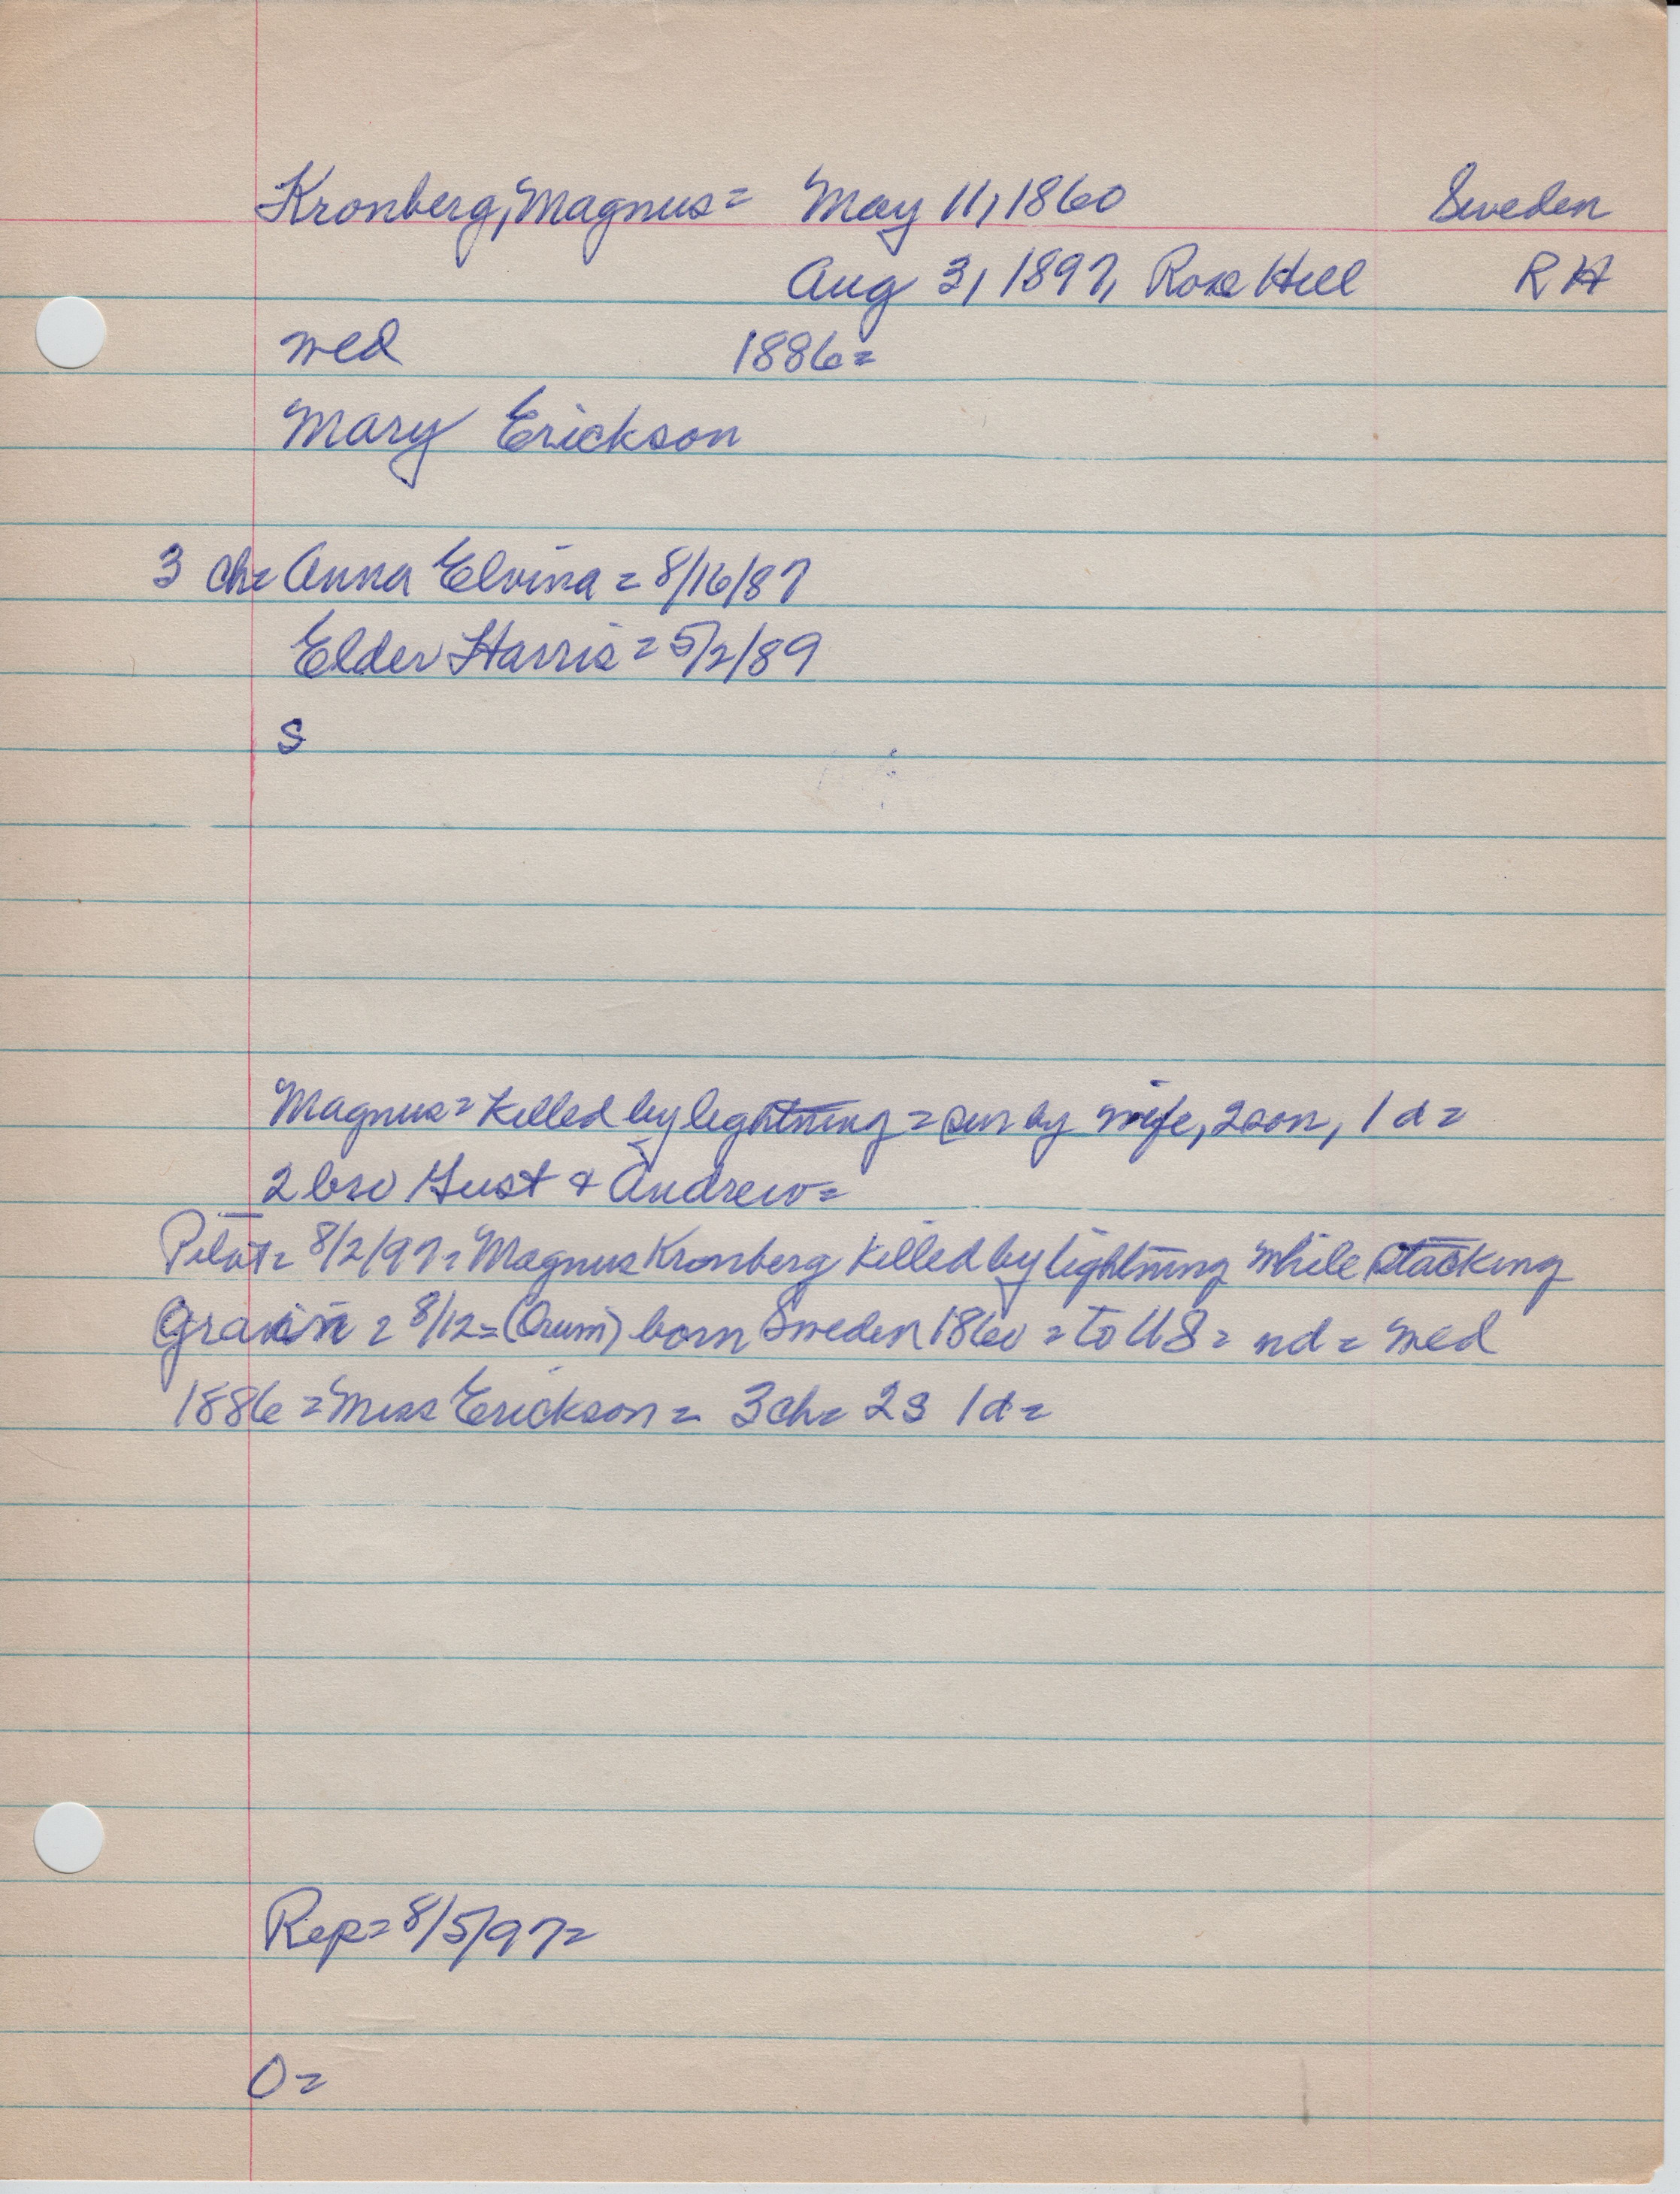 Kronberg, Magnus = May 11, 1860 Sweden
Aug 3, 1897, Rose Hill R H
wed 1886 =
Mary Erickson
3 ch = Anna Elvina = 8/16/87
Elder Harris = 5/2/89
S
Magnus = Killed by lightning = sur by wife, 2 son, 1 d =
2 bro Gust & Andrew =
Pilot = 8/2/97 = Magnus Kronberg Killed by lightning while stacking
Grain = 8/12 = (Orum) born Sweden 1860 = to US = nd = wed
1886 = Miss Erickson = 3 ch = 2 S 1 d =
Rep = 8/5/97 =
O =